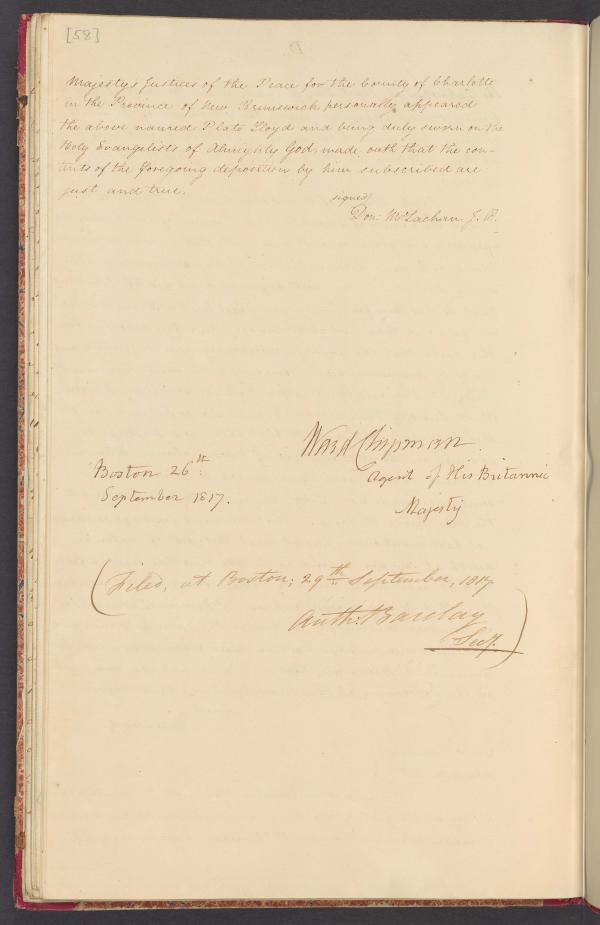 [58]
Majesty's Justices of the Peace for the County of Charlotte
in the Province of New Brunswick personally appeared
the above named Plato Lloyd and being duly sworn on the
Holy Evangelists of Almighty God, made oath that the con-
tents of the foregoing deposition by him subscribed are
just and true.
signed
Don: McLachan. J. P.
Ward Chipman
Boston 26th
Agent of His Britannic
September 1817.
Majesty
(Filed, at Boston; 29th September, 1817
Anth: Barclay
Secy.)